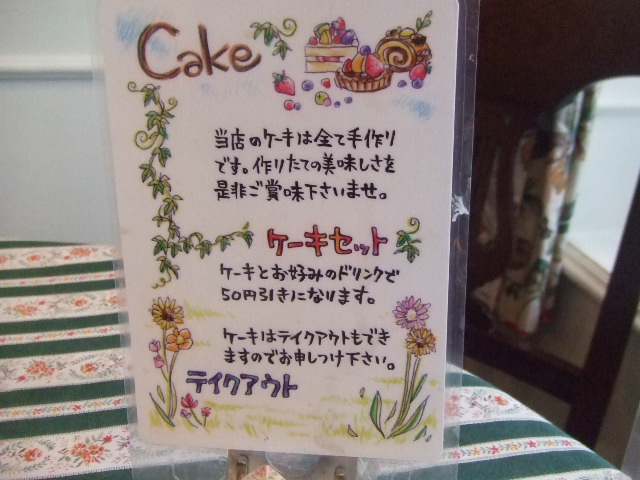 Cake
当店のケーキは全て手作り
です。作りたての美味しさを
是非ご賞味下さいませ。
ケーキセット
ケーキとお好みのドリンクで
50円引きになります。
ケーキはテイクアウトもでき
ますのでお申しつけ下さい。
テイクアウト